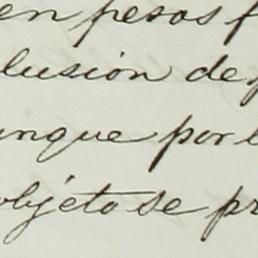 en pesos f
lusión de
unque por l
objeto se pr